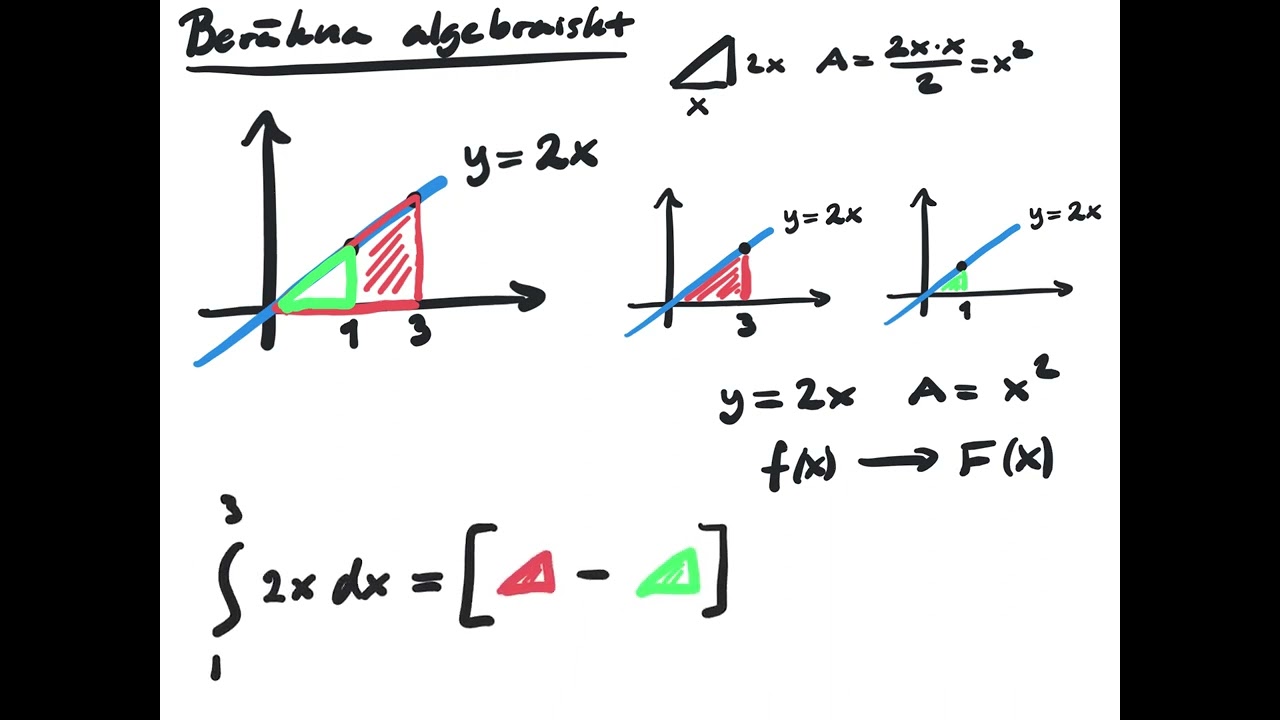 Beräkna algebraiskt
2x A = 2x·x/2 = x²
x
y = 2x
y = 2x
y = 2x
1 3
3
1
y = 2x A = x²
f(x) → F(x)
3
∫ 2x dx = [ - ]
1